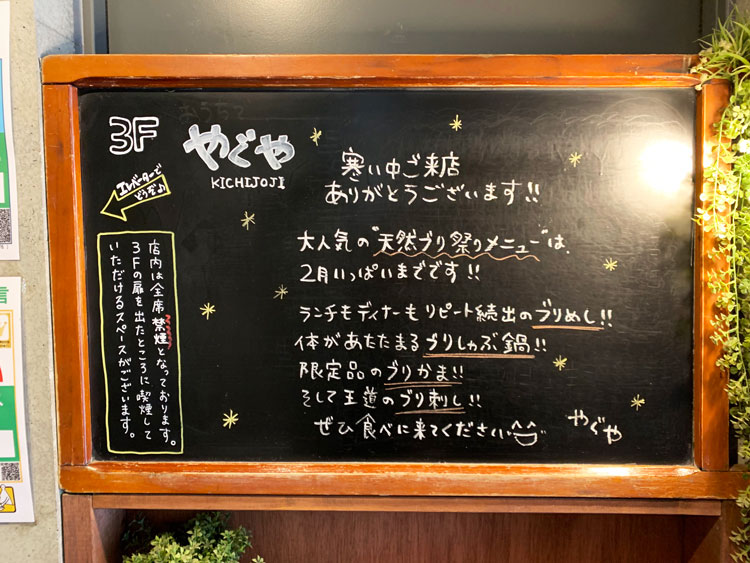 3F
やぐや
KICHIJOJI
エレベーターで
どうぞ♪
寒い中ご来店
ありがとうございます!!
大人気の"天然ブリ祭りメニュー"は、
2月いっぱいまでです!!
ランチもディナーもリピート続出のブリめし!!
体があたたまるブリしゃぶ鍋!!
限定品のブリかま!!
そして王道のブリ刺し!!
ぜひ食べに来てください
やぐや
店内は全席禁煙となっております。
3Fの扉を出たところに喫煙して
いただけるスペースがございます。